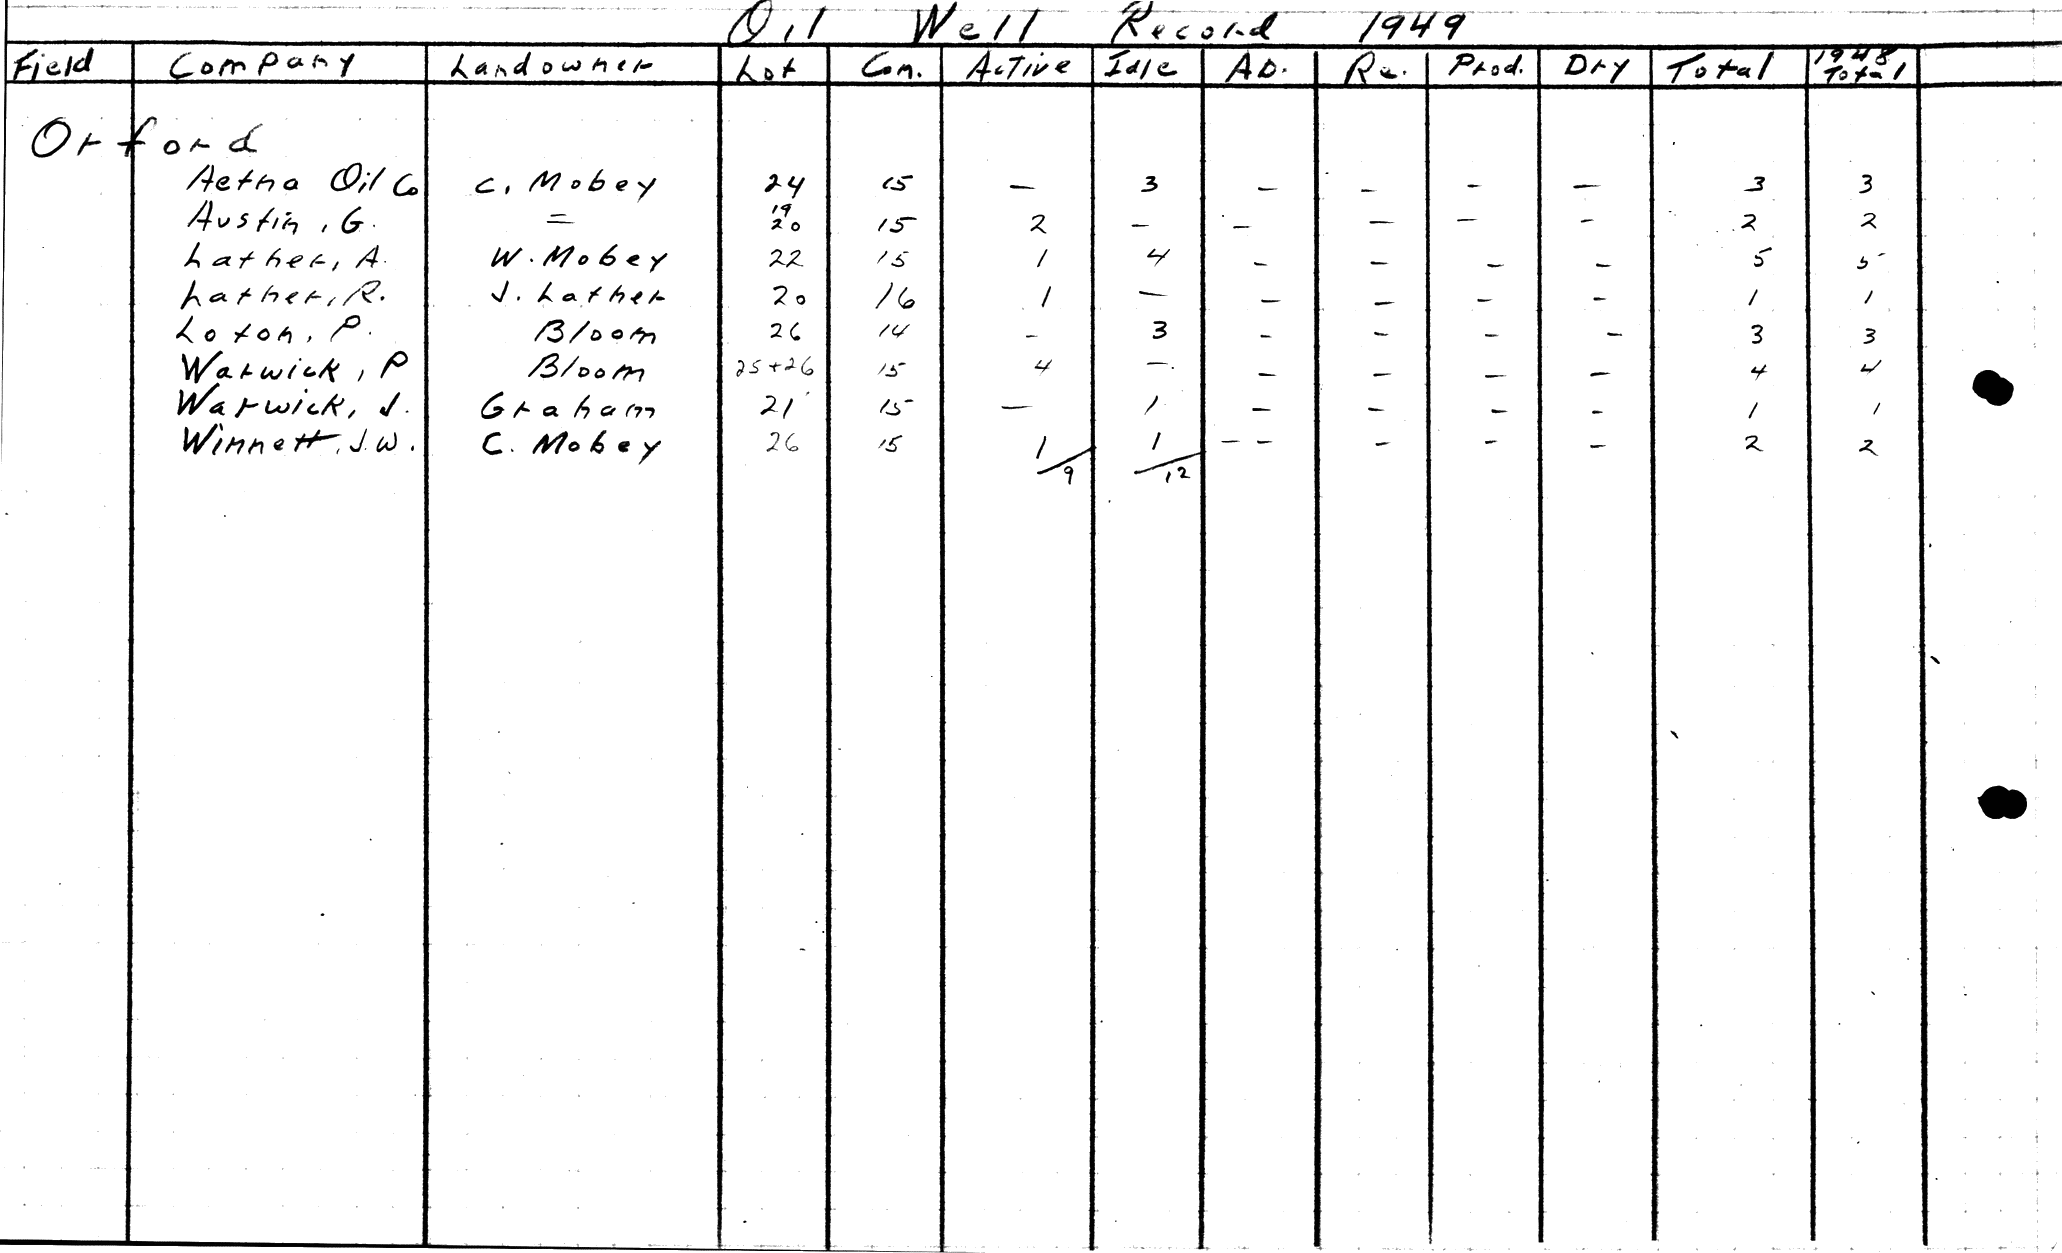 Oil Well Record 1949
Field Company Landowner Lot Con. Active Idle AD. Re. Prod. Dry Total 1948 Total
Orford
Aetna Oil Co C. Mobey 24 15 — 3 - - - — 3 3
Austin, G. = 19 20 15 2 - - - — - 2 2
Lather, A. W. Mobey 22 15 1 4 - - - - 5 5
Lather, R. J. Lather 20 16 1 — - - - - 1 1
Loton, P. Bloom 26 14 - 3 - - - - 3 3
Warwick, P Bloom 25+26 15 4 - - - - - 4 4
Warwick, J. Graham 21 15 — 1 - - - - 1 1
Winnett, J.W. C. Mobey 26 15 1 1 - - - - - 2 2
9 12